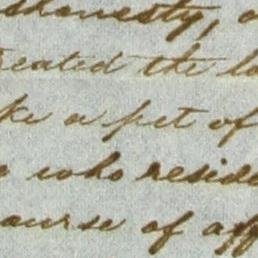 shonesty, o
reated the la
ke a pet of
o who reside
ourse of aff